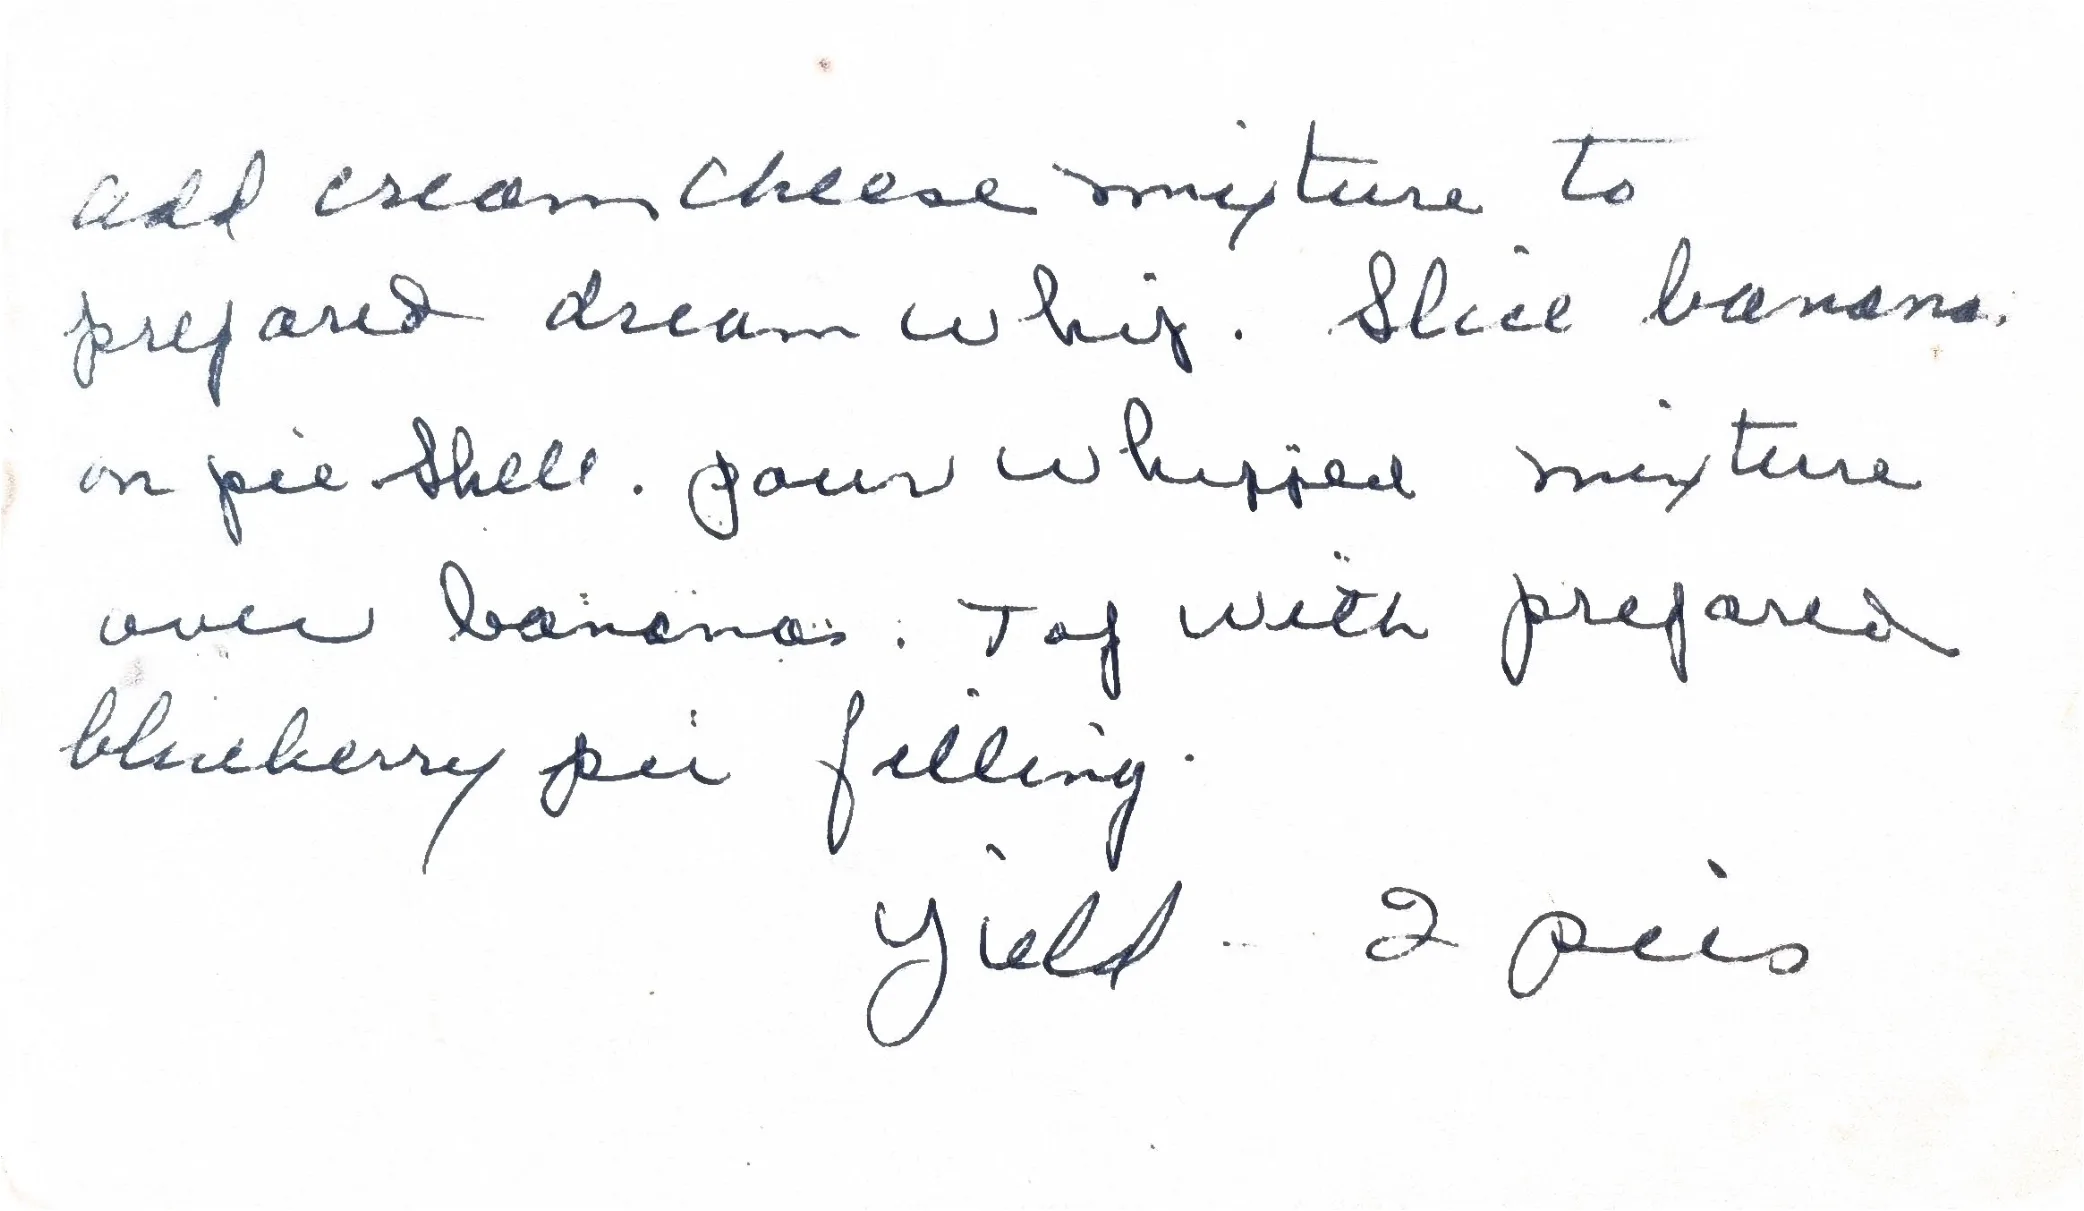 add cream cheese mixture to
prepared dream whip. Slice banana
on pie shell. pour whipped mixture
over bananas. Top with prepared
blueberry pie filling.
Yield - 2 pies